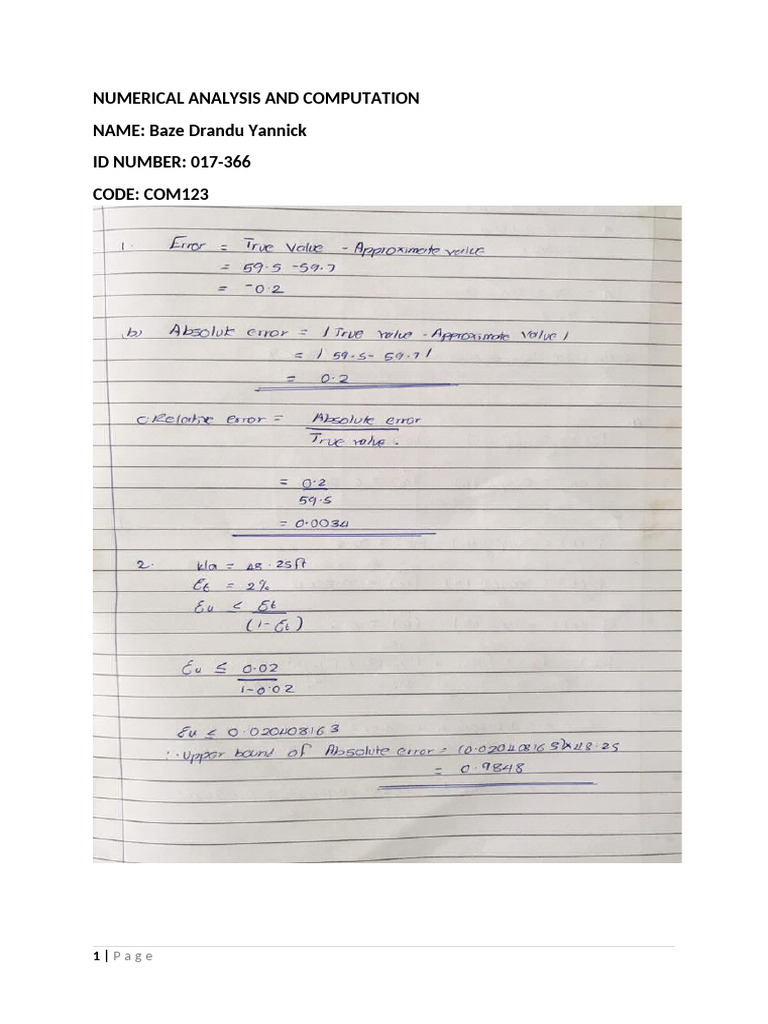 NUMERICAL ANALYSIS AND COMPUTATION
NAME: Baze Drandu Yannick
ID NUMBER: 017-366
CODE: COM123
1. Error = True Value - Approximate value
= 59.5 -59.7
= -0.2
b) Absolute error = |True value - Approximate Value|
= |59.5- 59.7|
= 0.2
c. Relative error = Absolute error
True value.
= 0.2
59.5
= 0.0034
2. = 48.25ft
Et = 2%
Eu ≤ Et
(1-Et)
Eu ≤ 0.02
1-0.02
Eu ≤ 0.020408163
∴ Upper bound of Absolute error = (0.020408163)×48.25
= 0.9848
1 | Page